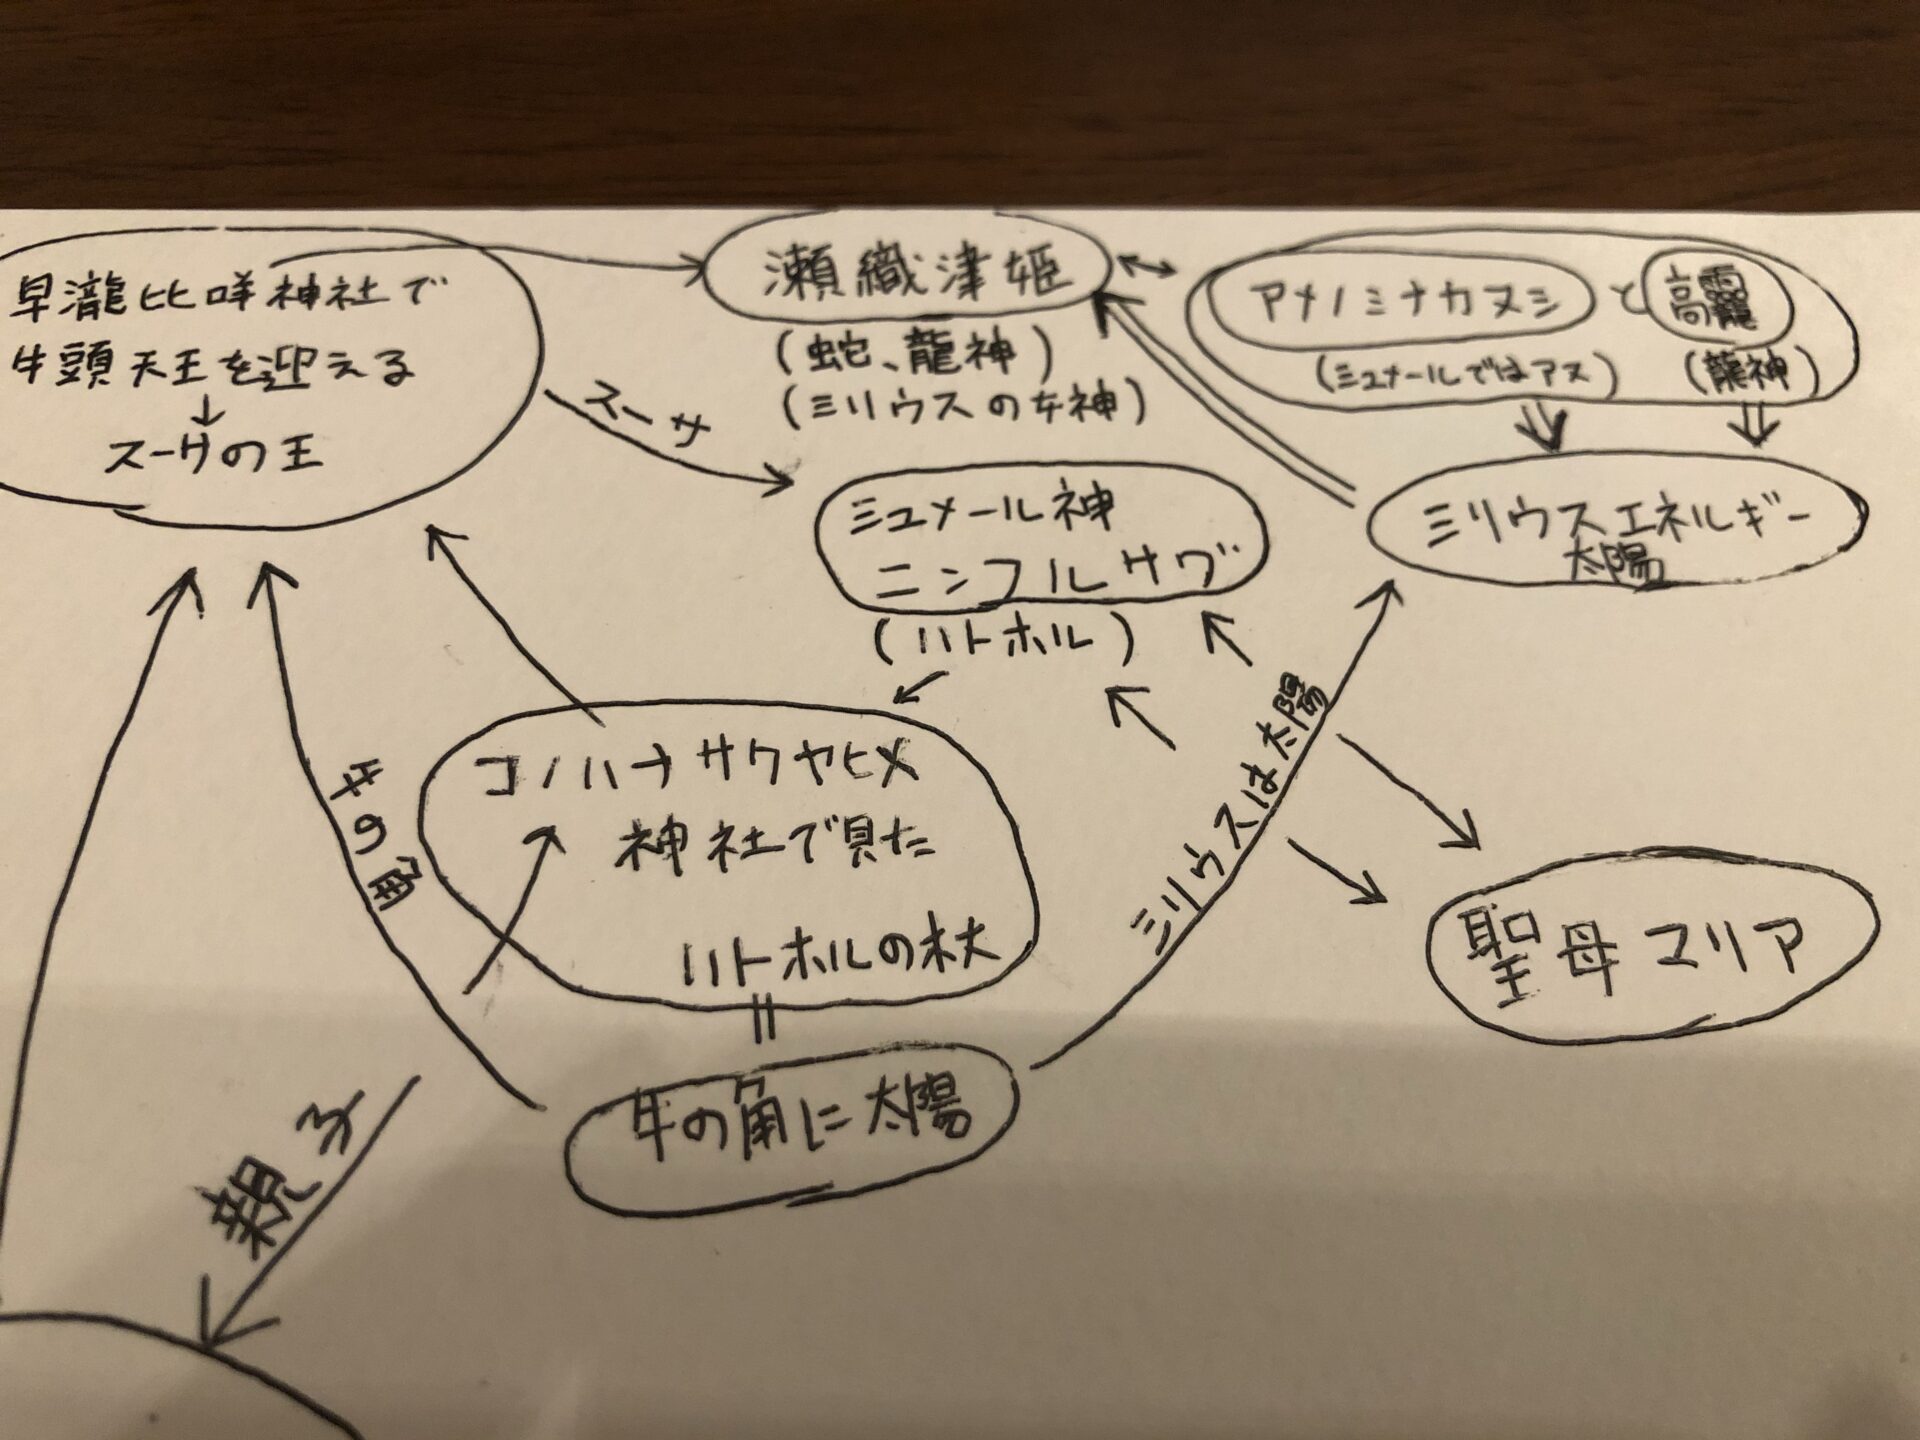 早瀧比咩神社で
牛頭天王を迎える
↓
スーサの王
瀬織津姫
(蛇、龍神)
(ミリウスの女神)
アメノミナカヌシと高龗
(ミュメールではアヌ) (龍神)
スーサ
ミュメール神
ニンフルサグ
(ハトホル)
ミリウスエネルギー
太陽
コノハナサクヤヒメ
神社で見た
ハトホルの杖
牛の角
ミリウスは太陽
聖母マリア
牛の角に太陽
親子